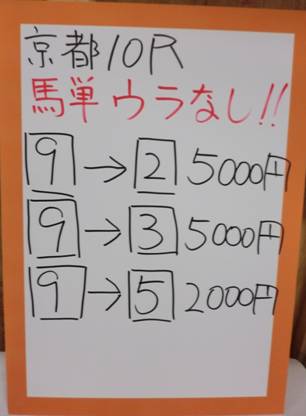 京都10R
馬単ウラなし!!
9→2 5000円
9→3 5000円
9→5 2000円